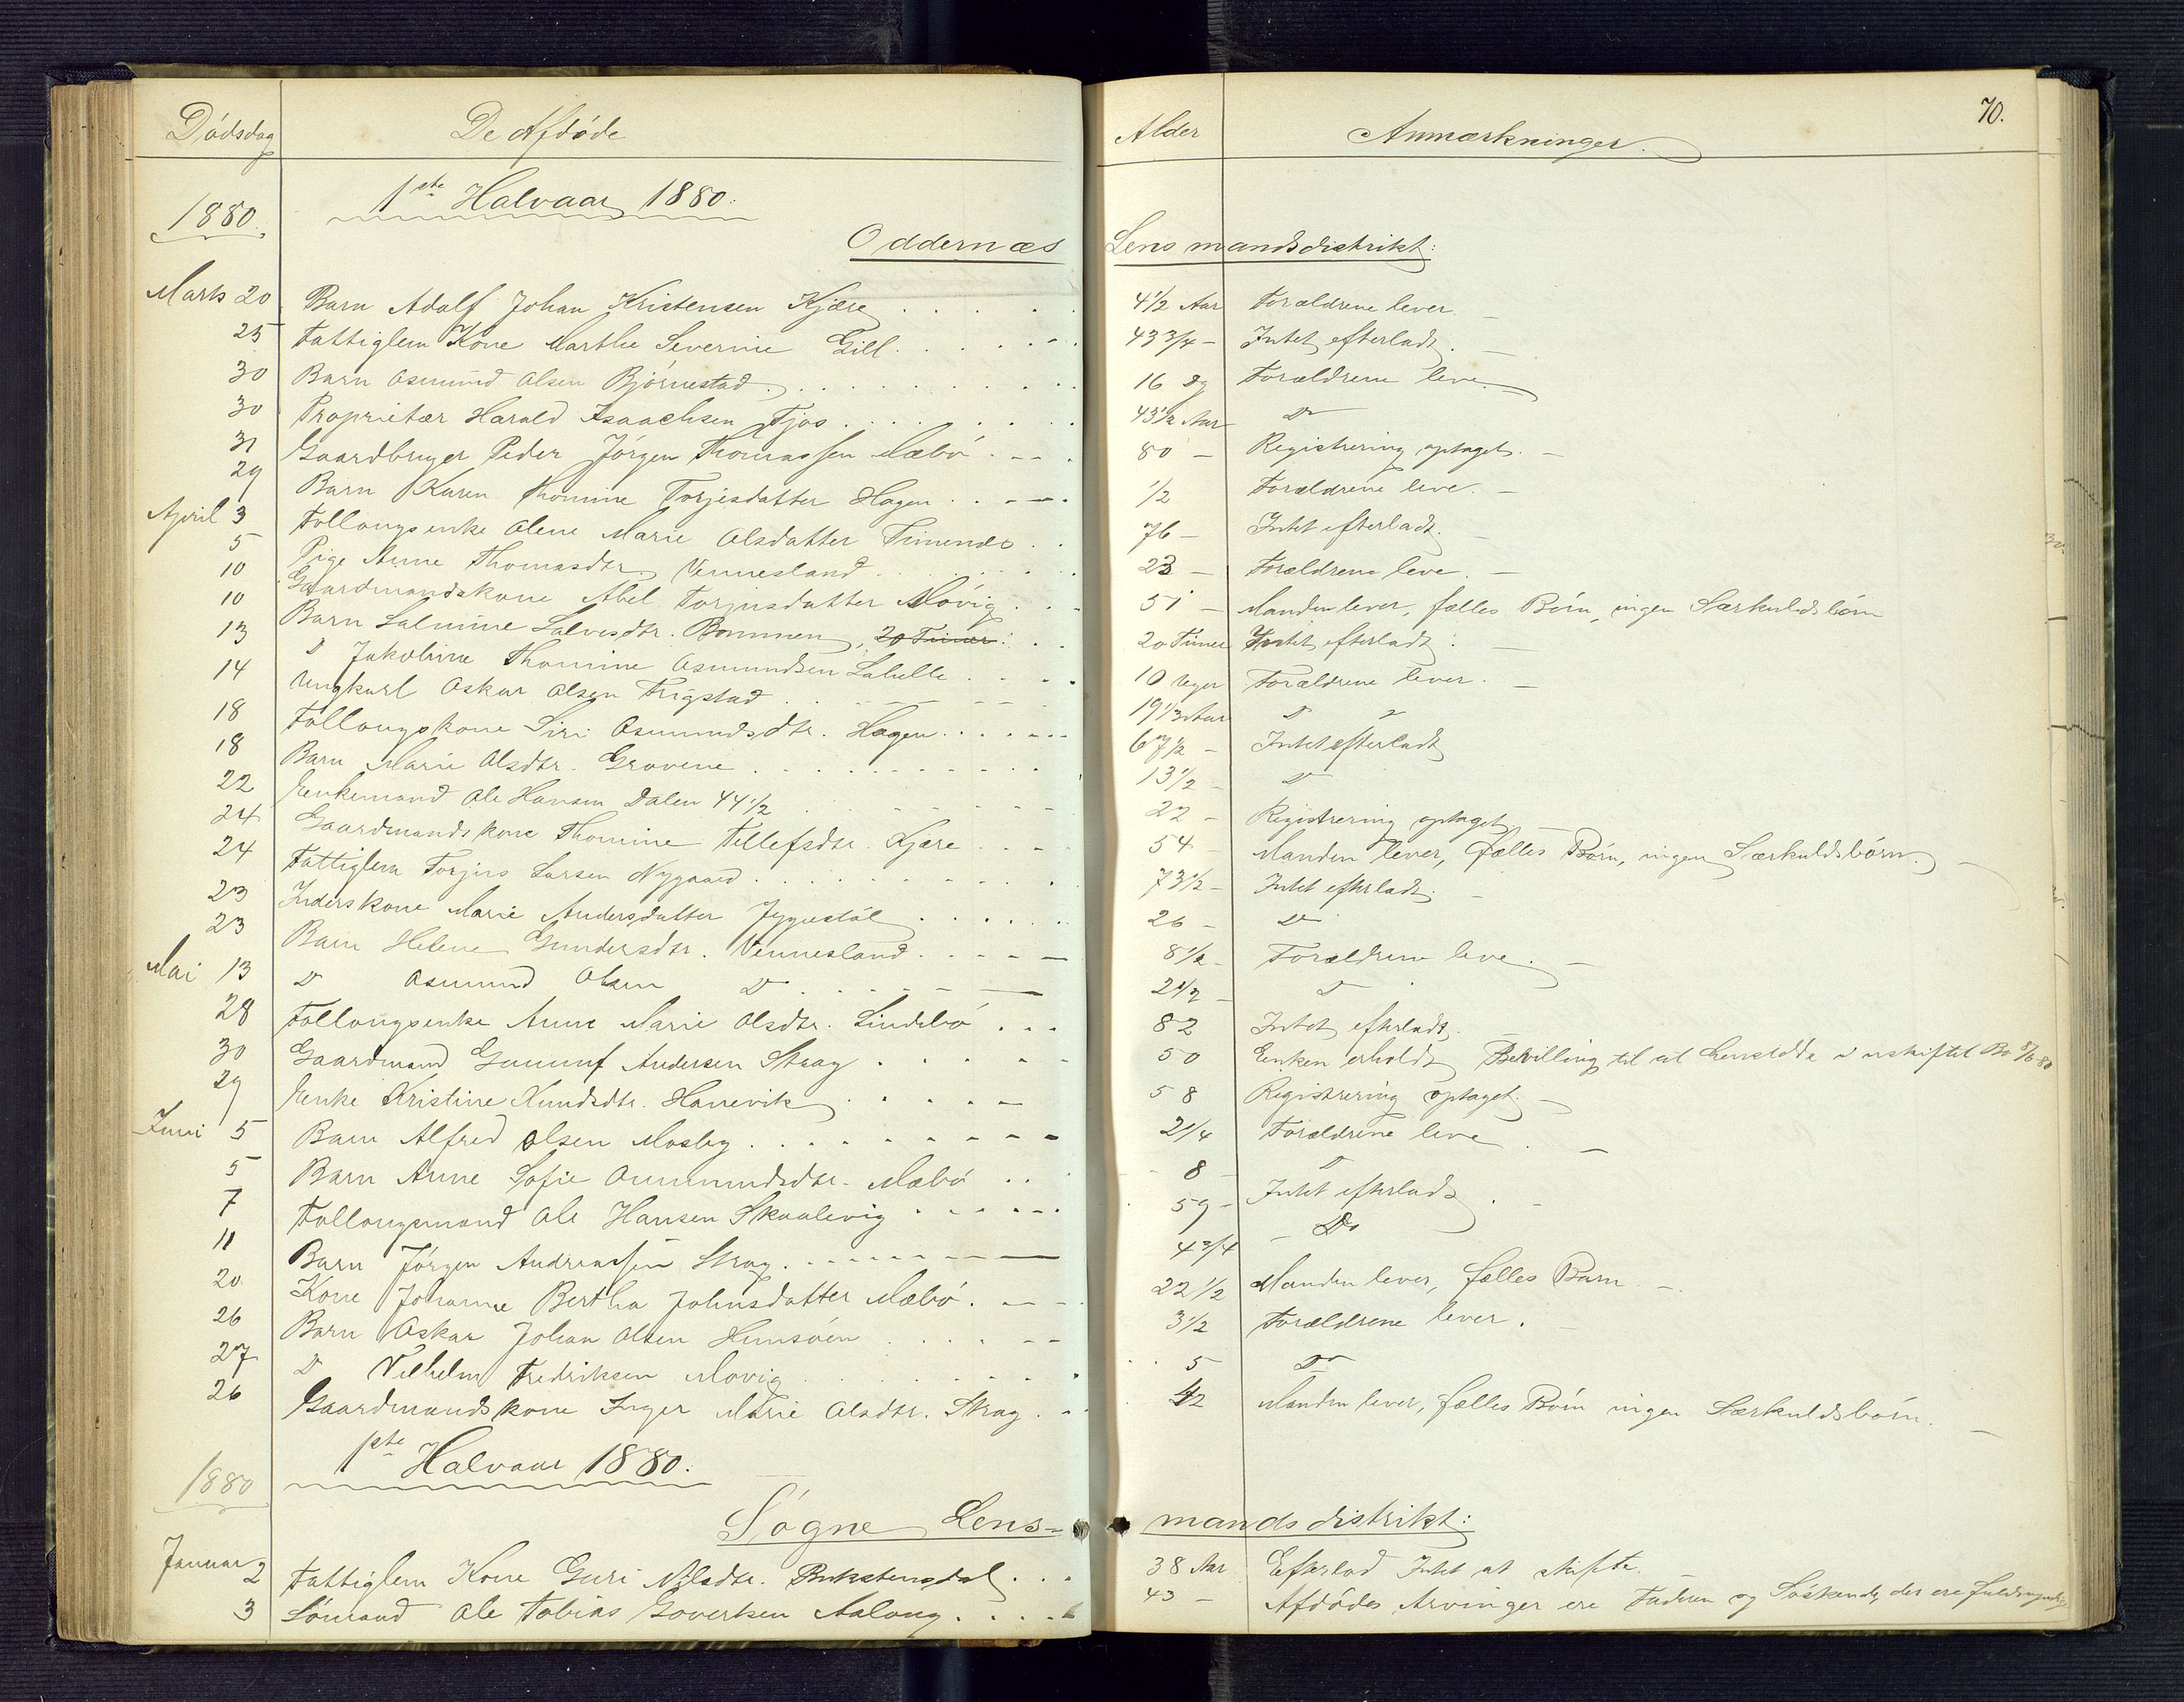 70.
Dödsdag De Afdöde Alder Anmærkninger.
1880. 1ste Halvaar 1880.
Oddernæs Lensmandsdistrikt:
Marts 20 Barn Adolf Johan Kristensen Kjære 4 1/2 Aar Forældrene lever.
25 Fattiglem Kone Marthe Severine Gill 43 3/4 - Intet efterladt.
30 Barn Asmund Olsen Björnestad 16 Dg Forældrene leve
30 Proprietær Harald Isaachsen Fjos 43 1/2 Aar Do
31 Gaardbruger Peder Jörgen Thomassen Mæbö 80 - Registrering optaget. -
29 Barn Karen Thomine Torjesdatter Hagen 1/2 Forældrene leve. -
April 3 Follougsenke Olene Marie Olsdatter 76 - Intet efterladt. -
5 Pige Anne Thomasdtr. Vennesland 23 - Forældrene leve. -
10 Gaardmandskone Abel Torjusdatter Mövig 51 - Manden lever, fælles Börn, ingen Særkuldsbörn
10 Barn Salmine Salvesdtr. Bommen, 20 Timer 20 Timer Intet efterladt.
13 D Jakobine Thomine Asmundsen Labelle 10 Uger Forældrene lever. -
14 Ungkarl Oskar Olsen Trigstad 19 1/3 Aar D
18 Follougskone Siri Asmundsdtr. Hagen 67 1/2 - Intet efterladt
18 Barn Marie Olsdtr. Grovene 13 1/2 - D
22 Enkemand Ole Hansen Dalen 44 1/2 22 - Registrering optaget
24 Gaardmandskone Thomine Tellefsdtr. Kjære 54 - Manden lever, fælles Börn, ingen Særkuldsbörn. -
24 Fattiglem Torjus Larsen Nygaard 73 1/2 - Intet efterladt. -
23 Inderskone Marie Andersdatter 26 - D
23 Barn Helene Gundersdtr. Vennesland 8 1/2 - Forældrene leve. -
Mai 13 D Osmund Olsen D 2 1/2 - D
28 Follougsenke Anne Marie Olsdtr. Lindebö 82 Intet efterladt.
30 Gaardmand Gunuf Andersen Strag 50 Enken erholdt Bevilling til at hensidde i uskiftet Bo 8/6 80
29 Enke Kristine Knudsdtr. Hanevik 58 Registrering optaget. -
Juni 5 Barn Alfred Olsen Mosby 2 1/4 Forældrene leve. -
5 Barn Anne Sofie Ommundsdtr. Mæbö 8 - D
7 Follougsmand Ole Hansen Skaalevig 59 - Intet efterladt. -
11 Barn Jörgen Andreassen Strag 4 3/4 - Do
20 Kone Johanne Bertha Johnsdatter Mæbö. 22 1/2 Manden lever, fælles Barn -
26 Barn Oskar Johan Olsen Humsöen 3 1/2 Forældrene lever. -
27 D Vilhelm Fredriksen Movig 5 Do
26 Gaardmandskone Inger Marie Olsdtr. Strag. 42 Manden lever, fælles Börn ingen Særkuldsbörn. -
1880 1ste Halvaar 1880.
Sögne Lens- mandsdistrikt:
Januar 2 Fattiglem Kone Guri Nilsdtr. Bukstensdal 38 Aar Efterlod Intet at skifte.
3 Sömand Ole Tobias Govertsen Aalong 43 - Afdödes Arvinger ere Faderen og Söskende, der ere fuldmyndige